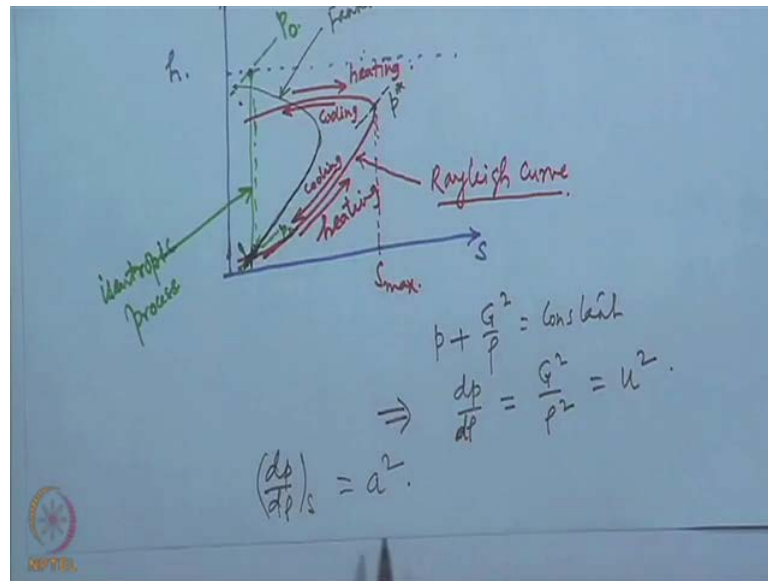 P₀.
h.
heating
cooling
p*
cooling
heating
Rayleigh Curve.
S
isentropic
process
Smax.
p + G²/ρ = Constant
⇒ dp/dρ = G²/ρ² = u².
(dp/dρ)s = a².
NPTEL